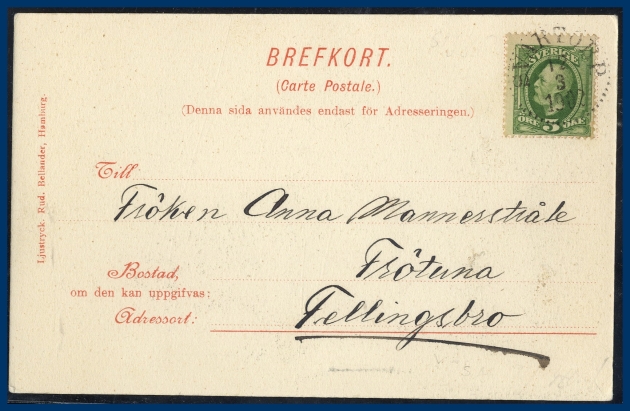 BREFKORT.
(Carte Postale.)
(Denna sida användes endast för Adresseringen.)
SVERIGE
ÖRE 5 ÖRE
Till
Fröken Anna Mannerstråle
Frötuna
Fellingsbro
Bostad,
om den kan uppgifvas:
Adressort:
Ljustryck. Rud. Bellander, Hamburg.